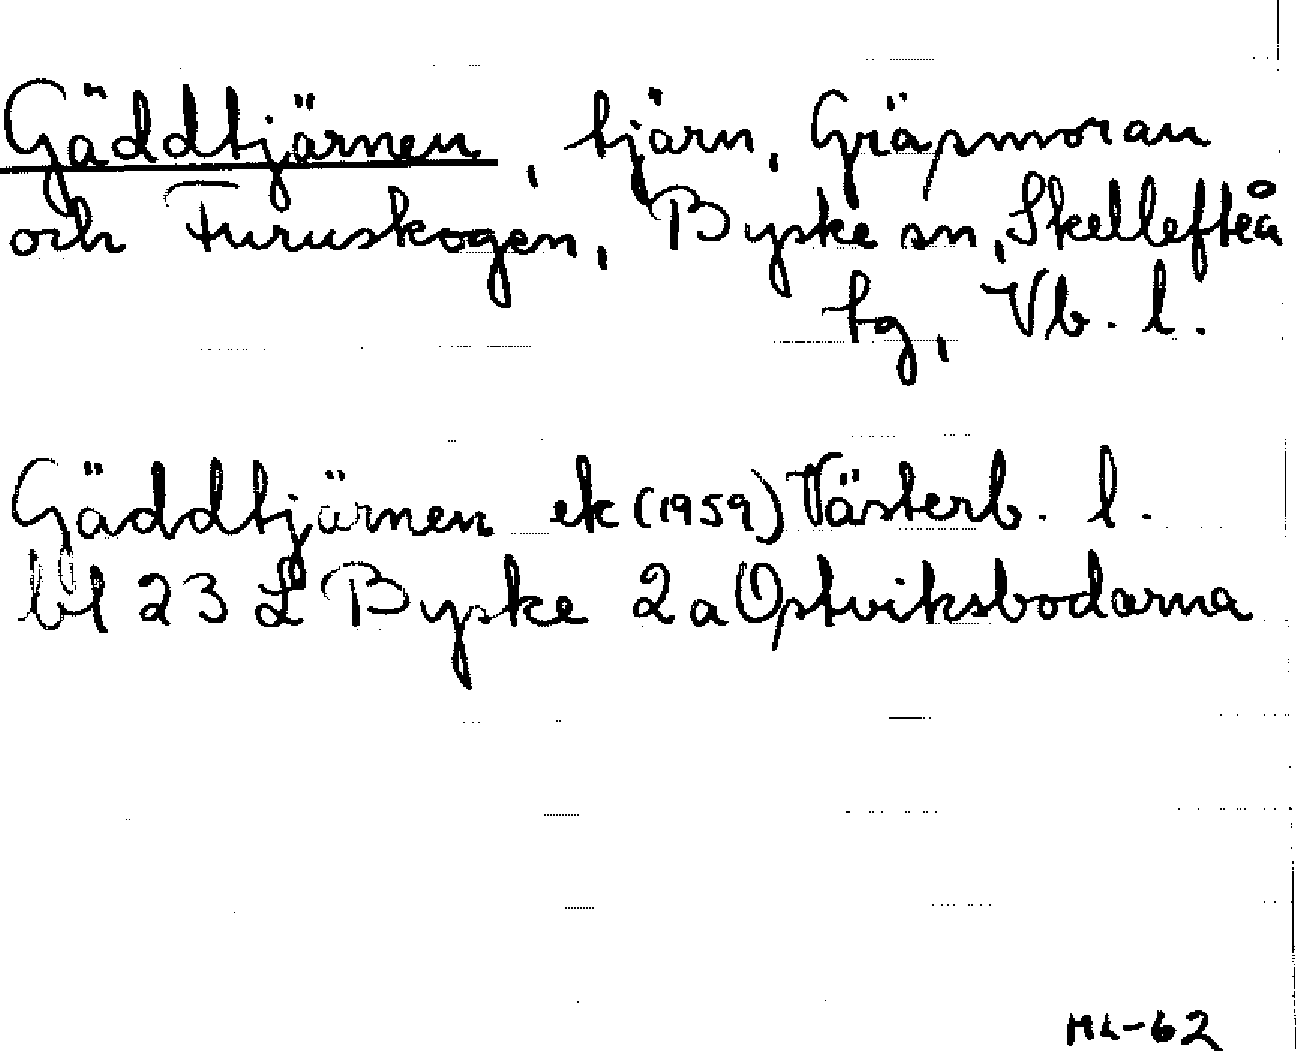 Gäddtjärnen, tjärn, Gräsmoran
och Furuskogen, Byske sn, Skellefteå
tg, Vb. l.
Gäddtjärnen ek (1959) Västerb. l.
bl 23 L Byske 2a Ostviksbodarna
ML-62